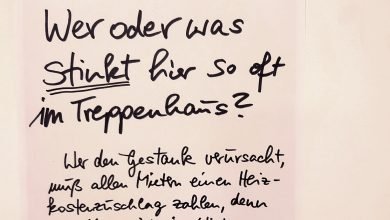 Wer oder was
stinkt hier so oft
im Treppenhaus?
Wer den Gestank verursacht,
muß allen Mietern einen Heiz-
kostenzuschlag zahlen, denn